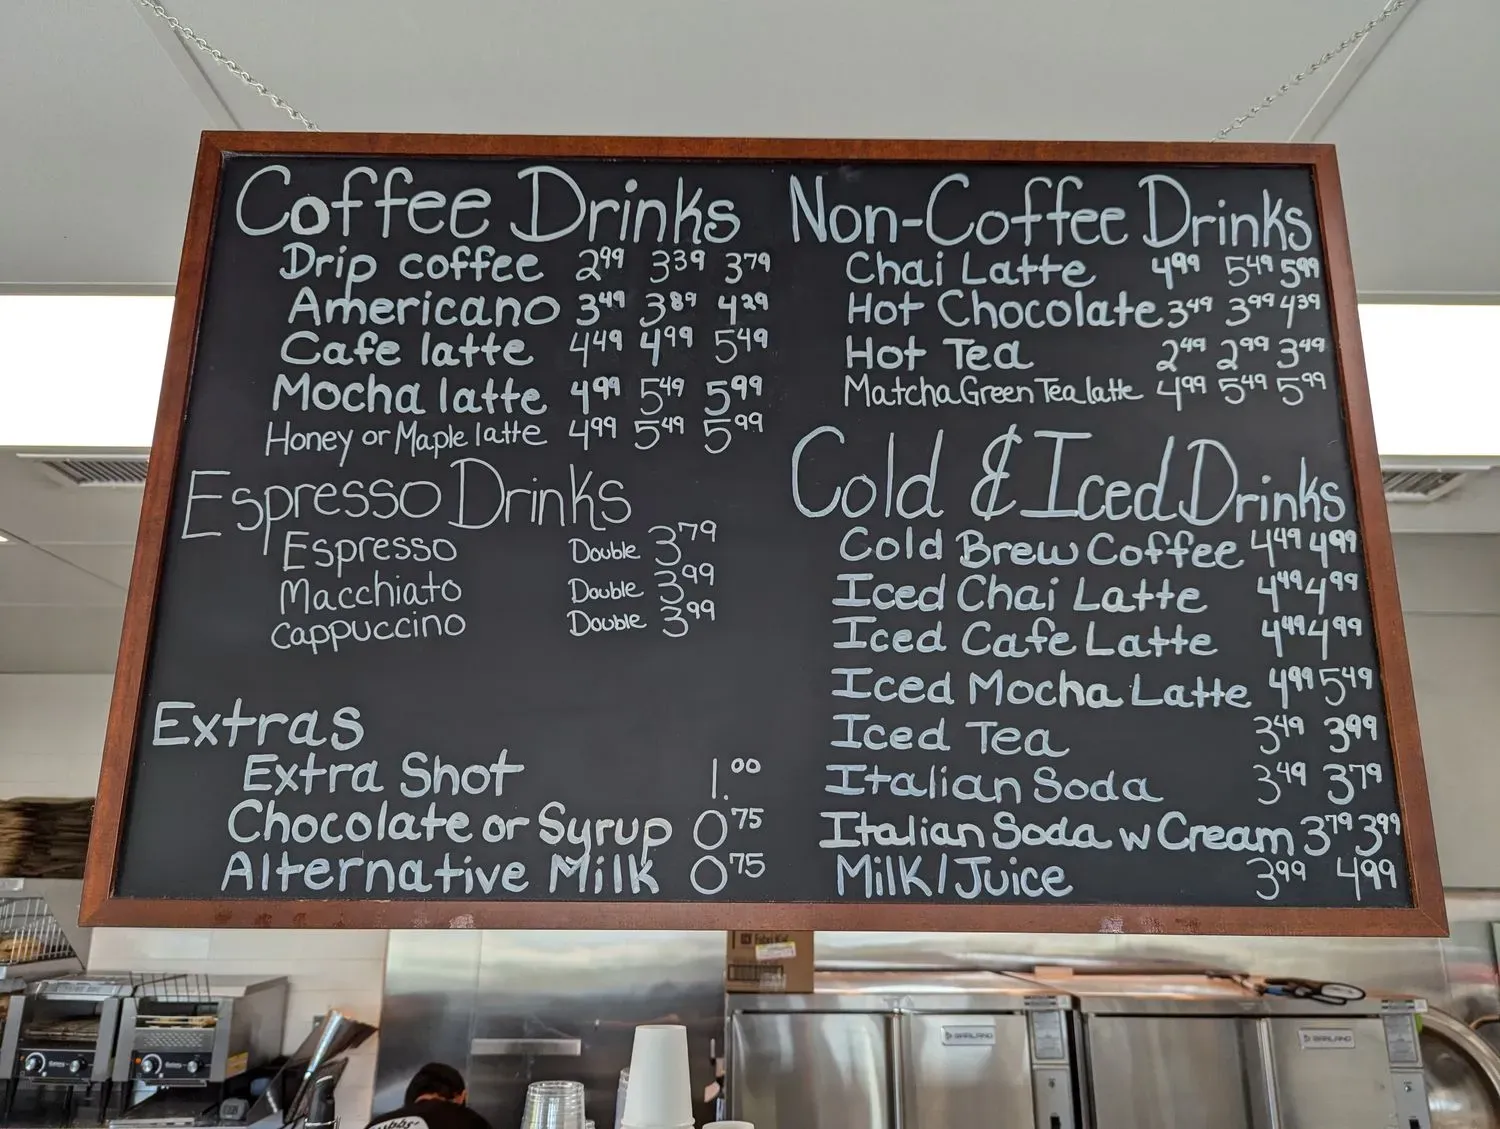 Coffee Drinks
Drip coffee 2.99 3.39 3.79
Americano 3.49 3.89 4.29
Cafe latte 4.49 4.99 5.49
Mocha latte 4.99 5.49 5.99
Honey or Maple latte 4.99 5.49 5.99
Espresso Drinks
Espresso Double 3.79
Macchiato Double 3.99
Cappuccino Double 3.99
Extras
Extra Shot 1.00
Chocolate or Syrup 0.75
Alternative Milk 0.75
Non-Coffee Drinks
Chai Latte 4.99 5.49 5.99
Hot Chocolate 3.49 3.99 4.39
Hot Tea 2.49 2.99 3.49
Matcha Green Tea latte 4.99 5.49 5.99
Cold & Iced Drinks
Cold Brew Coffee 4.49 4.99
Iced Chai Latte 4.49 4.99
Iced Cafe Latte 4.49 4.99
Iced Mocha Latte 4.99 5.49
Iced Tea 3.49 3.99
Italian Soda 3.49 3.79
Italian Soda w Cream 3.79 3.99
Milk/Juice 3.99 4.99
GARLAND
GARLAND